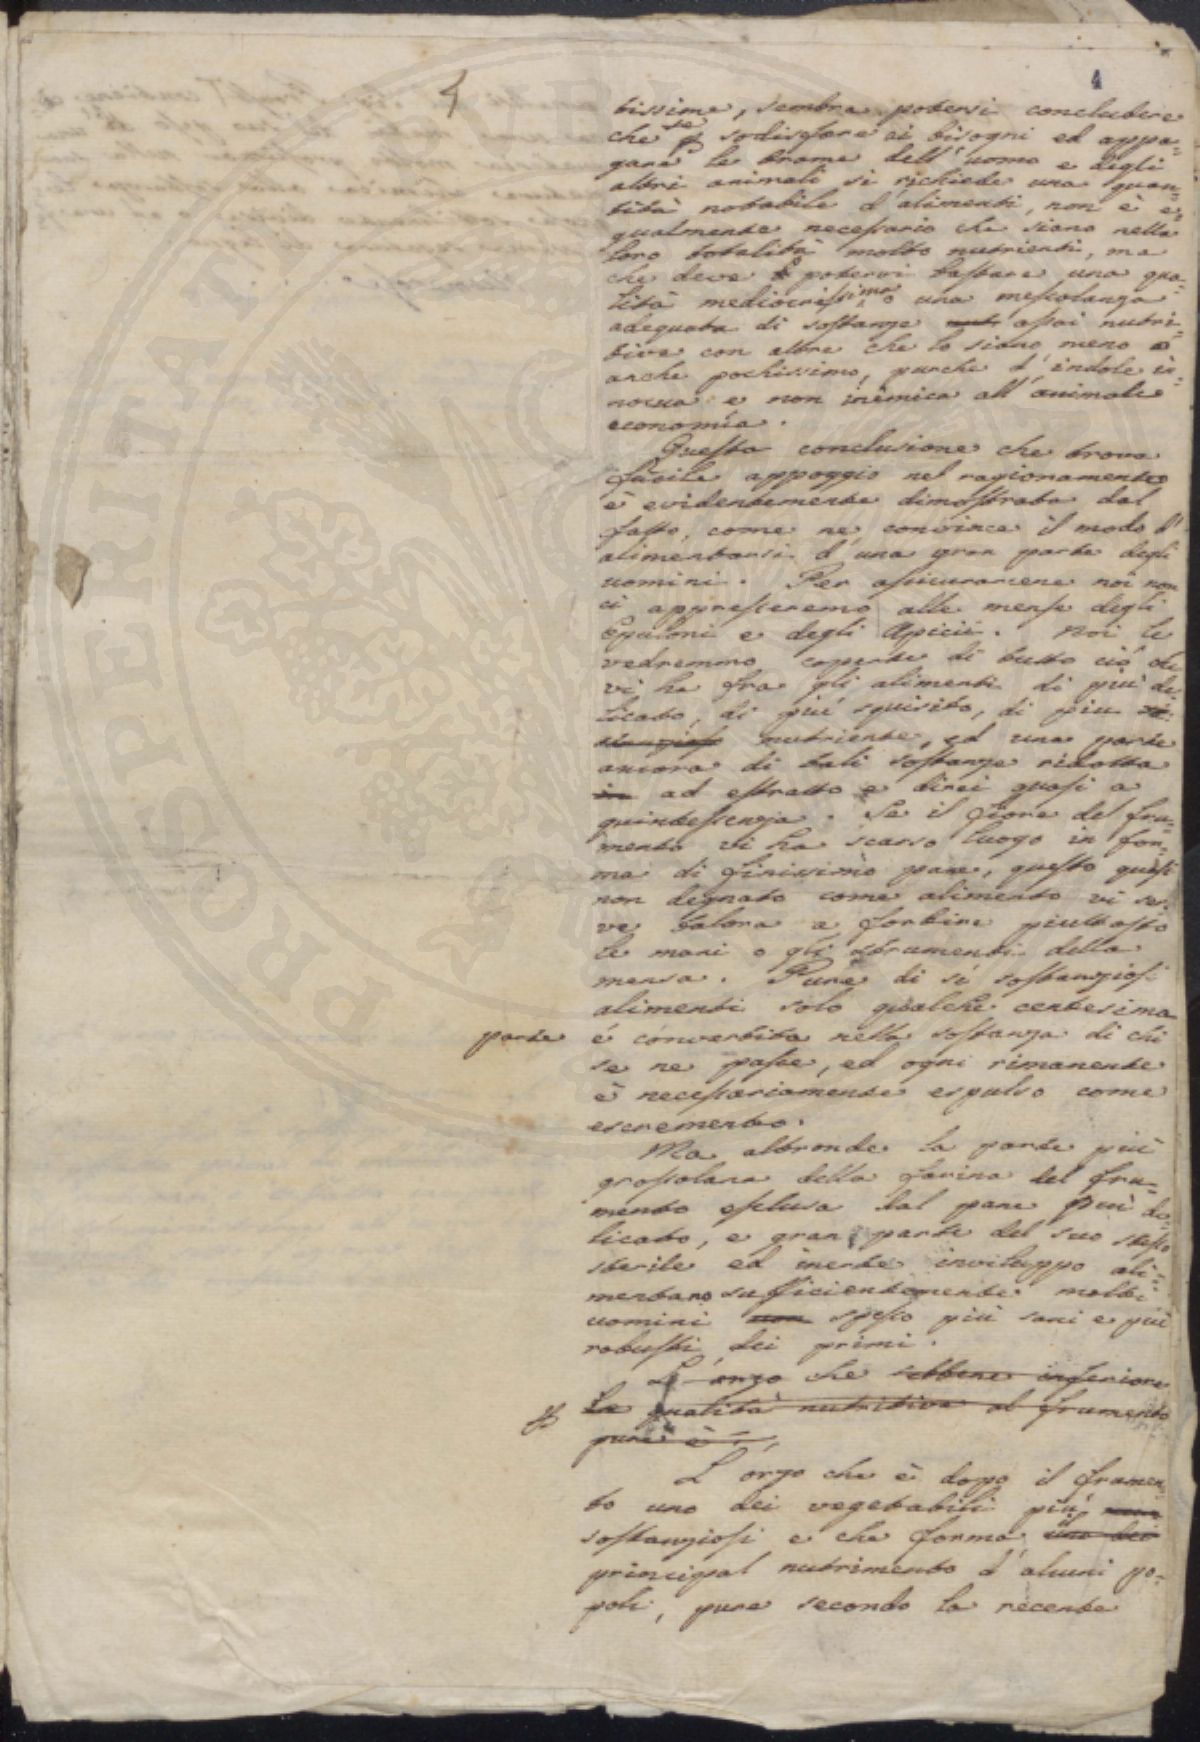 4
4
tissime, sembra potersi concludere
che se pr sodisfare ai bisogni ed appa=
gare le brame dell'uomo e degli
altri animali si richiede una quan=
tità notabile d'alimenti, non è e=
gualmente necessario che siano nella
loro totalità molto nutrienti, ma
che deve potervi bastare una qua=
lità mediocrissima o una mescolanza
adequata di sostanze nutr assai nutri=
tive con altre che lo siano meno o
anche pochissimo, purche d'indole in=
nocua e non inimica all'animale
economia.
Questa conclusione che trova
facile appoggio nel ragionamento
è evidentemente dimostrata dal
fatto, come ne convince il modo d'
alimentarsi d'una gran parte degli
uomini. Per assicurarcene noi non
ci appresseremo alle mense degli
Epuloni e degli Apicii. Noi le
vedremmo coperte di tutto ciò che
vi ha fra gli alimenti di più de=
licato, di più squisito, di piu so=
stanzioso nutriente, ed una parte
ancora di tali sostanze ridotta
in ad estratto e direi quasi a
quintessenza. Se il fiore del fru=
mento vi ha scarso luogo in for=
ma di finissimo pane, questo quasi
non degnato come alimento vi ser
ve talora a forbire piuttosto
le mani o gli strumenti della
mensa. Pure di sì sostanziosi
alimenti solo qualche centesima
parte è convertita nella sostanza di chi
se ne pasce, ed ogni rimanente
è necessariamente espulso come
escremento.
Ma altronde la parte più
grossolana della farina del fru=
mento esclusa dal pane più de=
licato, e gran parte del suo stesso
sterile ed inerte inviluppo ali=
mentano sufficientemente molti
uomini non spesso più sani e più
robusti dei primi.
L'orzo che sebbene inferiore
in qualità nutritiva al frumento
pure è
L'orzo che è dopo il frumen=
to uno dei vegetabili più
sostanziosi e che forma uno dei
principal nutrimento d'alcuni po=
poli, pure secondo la recente
PROSPERITATI